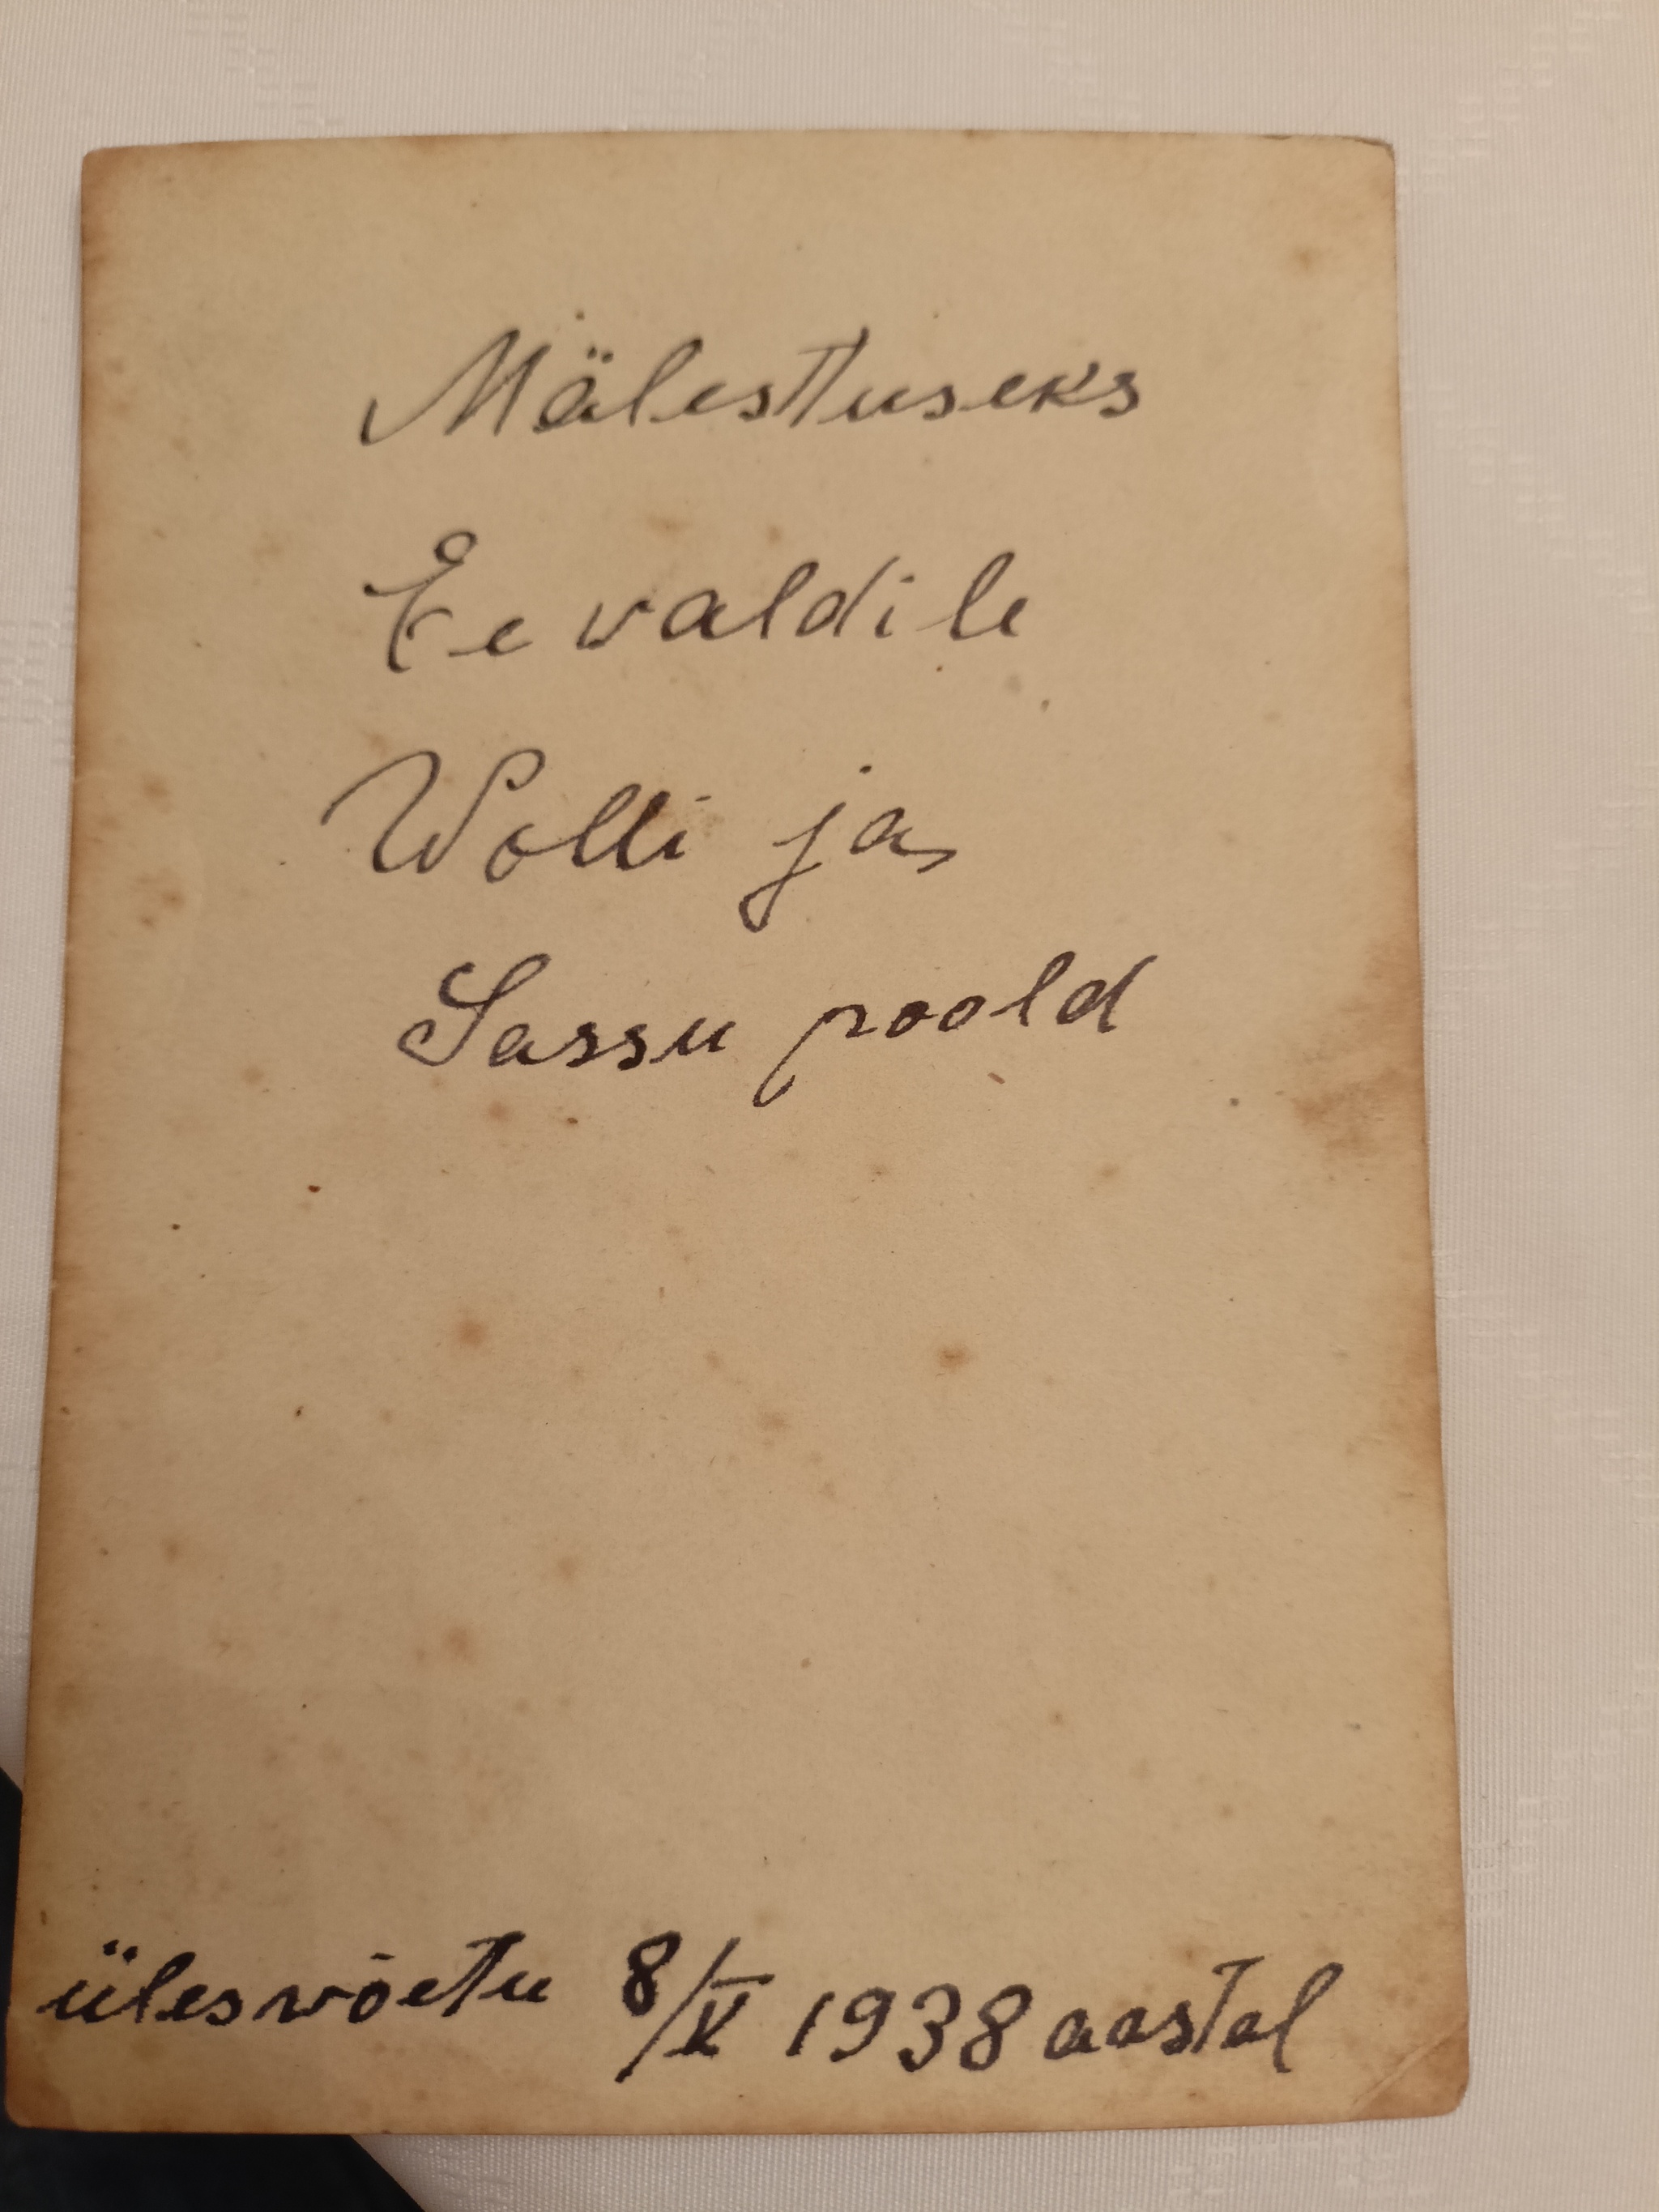 Mälestuseks
Eevaldile
Wolli ja
Sassu poold
üleswõetu 8/V 1938 aastal